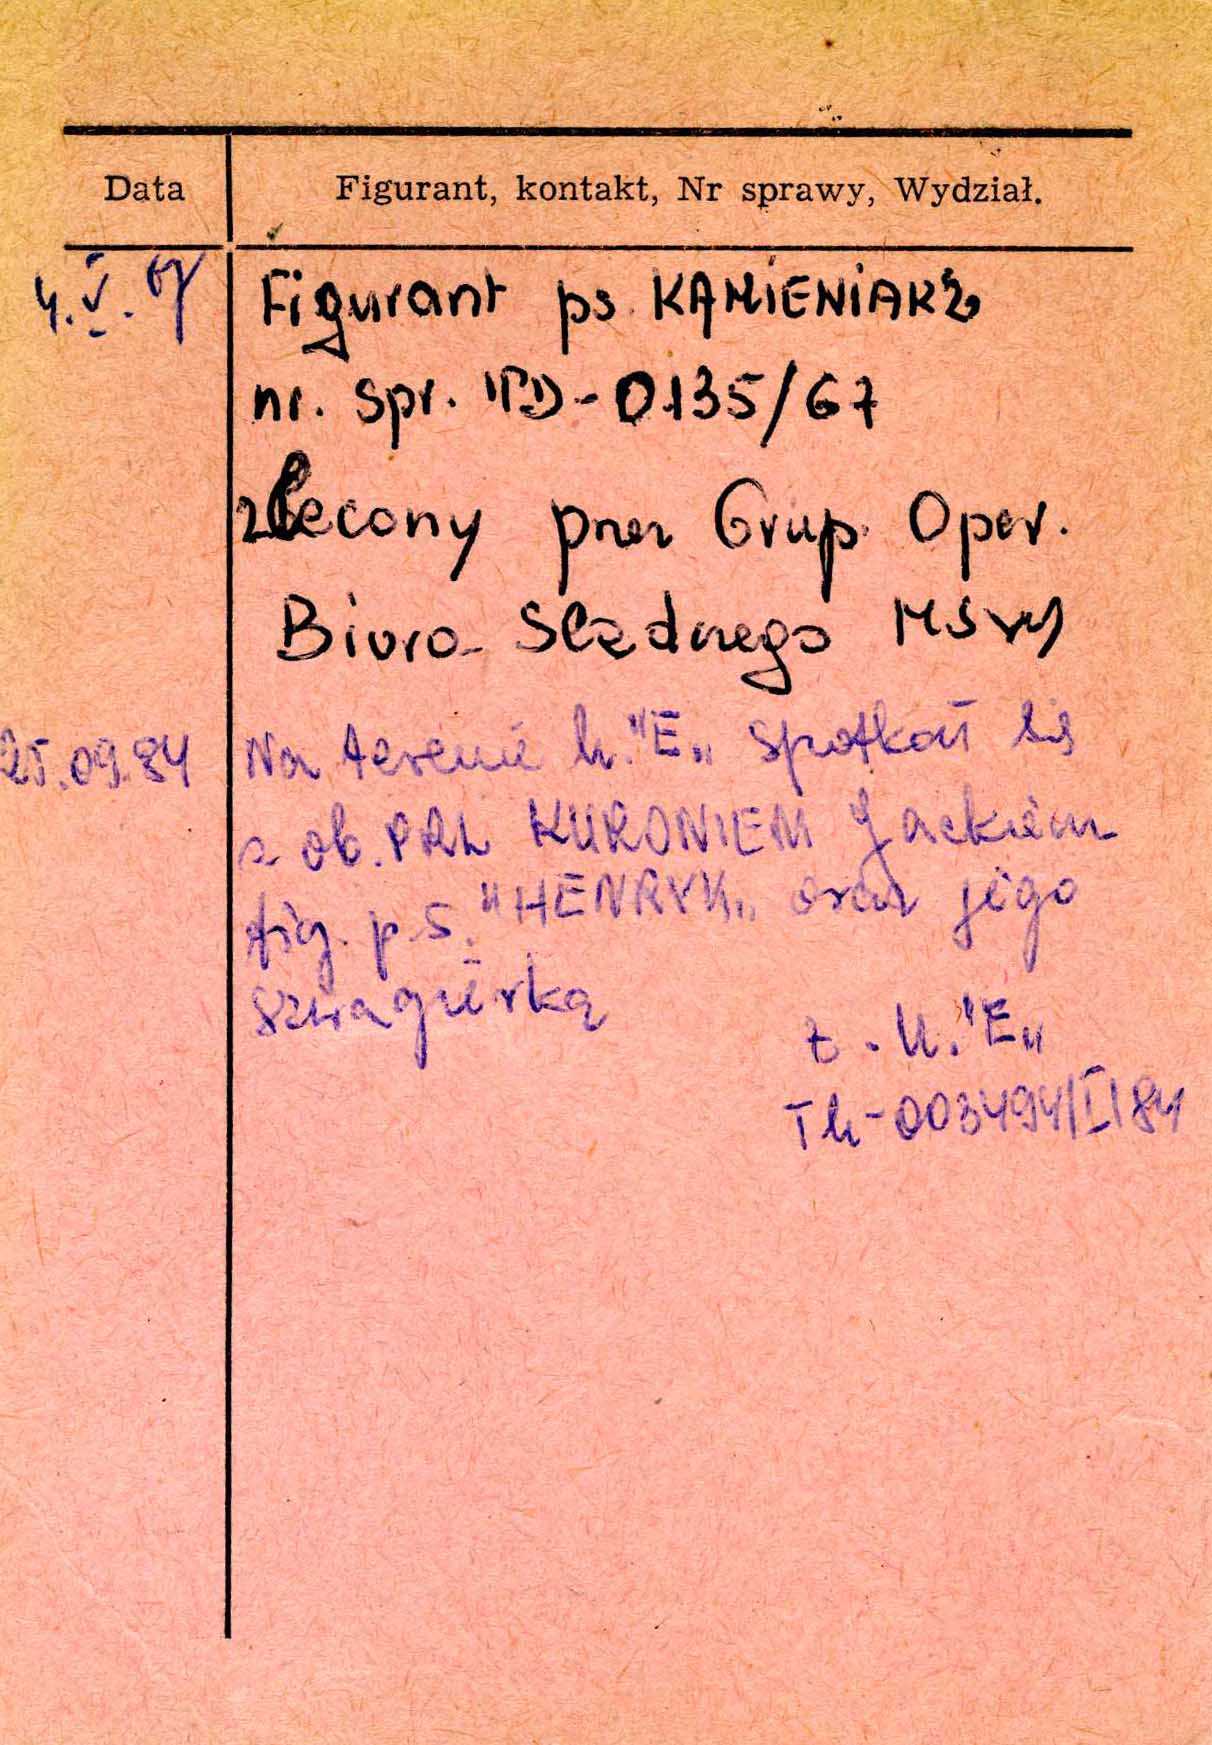 Data Figurant, kontakt, Nr sprawy, Wydział.
4.V.67 Figurant ps. KAMIENIARZ
nr. spr. TD-0135/67
zlecony przez Grup. Oper.
Biura Śledczego MSW
25.09.84 Na terenie h. "E" spotkał się
z ob. PRL KURONIEM Jackiem
fig. p.s. "HENRYK" oraz jego
szwagierką
"E"
-003494/I/84